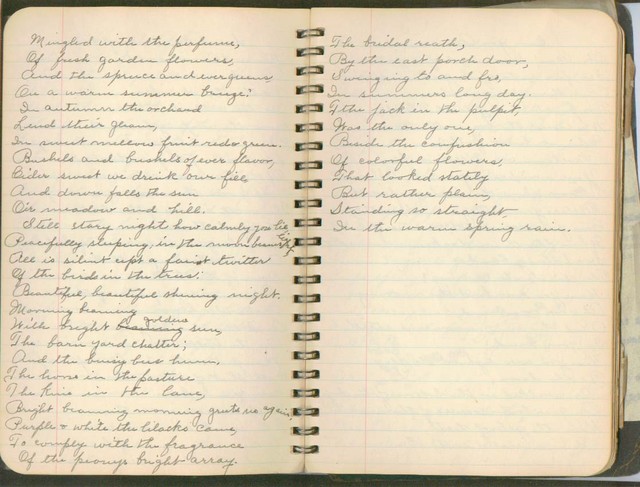 Mingled with the perfume,
Of fresh garden flowers,
And the spruce and evergreens,
On a warm summer breeze;
In autumn the orchard
Lend their gleam,
In sweet mellow fruit red & green.
Bushels and bushels of ever flavor,
Cider sweet we drink our fill
And down falls the sun
O'er meadow and hill.
Still stary night how calmly you lie,
Peacefully sleeping, in the moon
All is silent cept a faint twitter
Of the birds in the trees;
Beautiful, beautiful shining night.
Morning beaming
With bright golden sun,
The barn yard chatter;
And the busy bees hum.
The horse in the pasture
The kine in the lane,
Bright beaming morning greets us again,
Purple & white the lilacks came,
To comply with the fragrance
Of the peonys bright array.
The bridal reath,
By the east porch door,
Swinging to and fro,
In summers long day.
The jack in the pulpit,
Was the only one,
Beside the confushion
Of colorful flowers,
That looked stately
But rather plain,
Standing so straight,
In the warm spring rain.